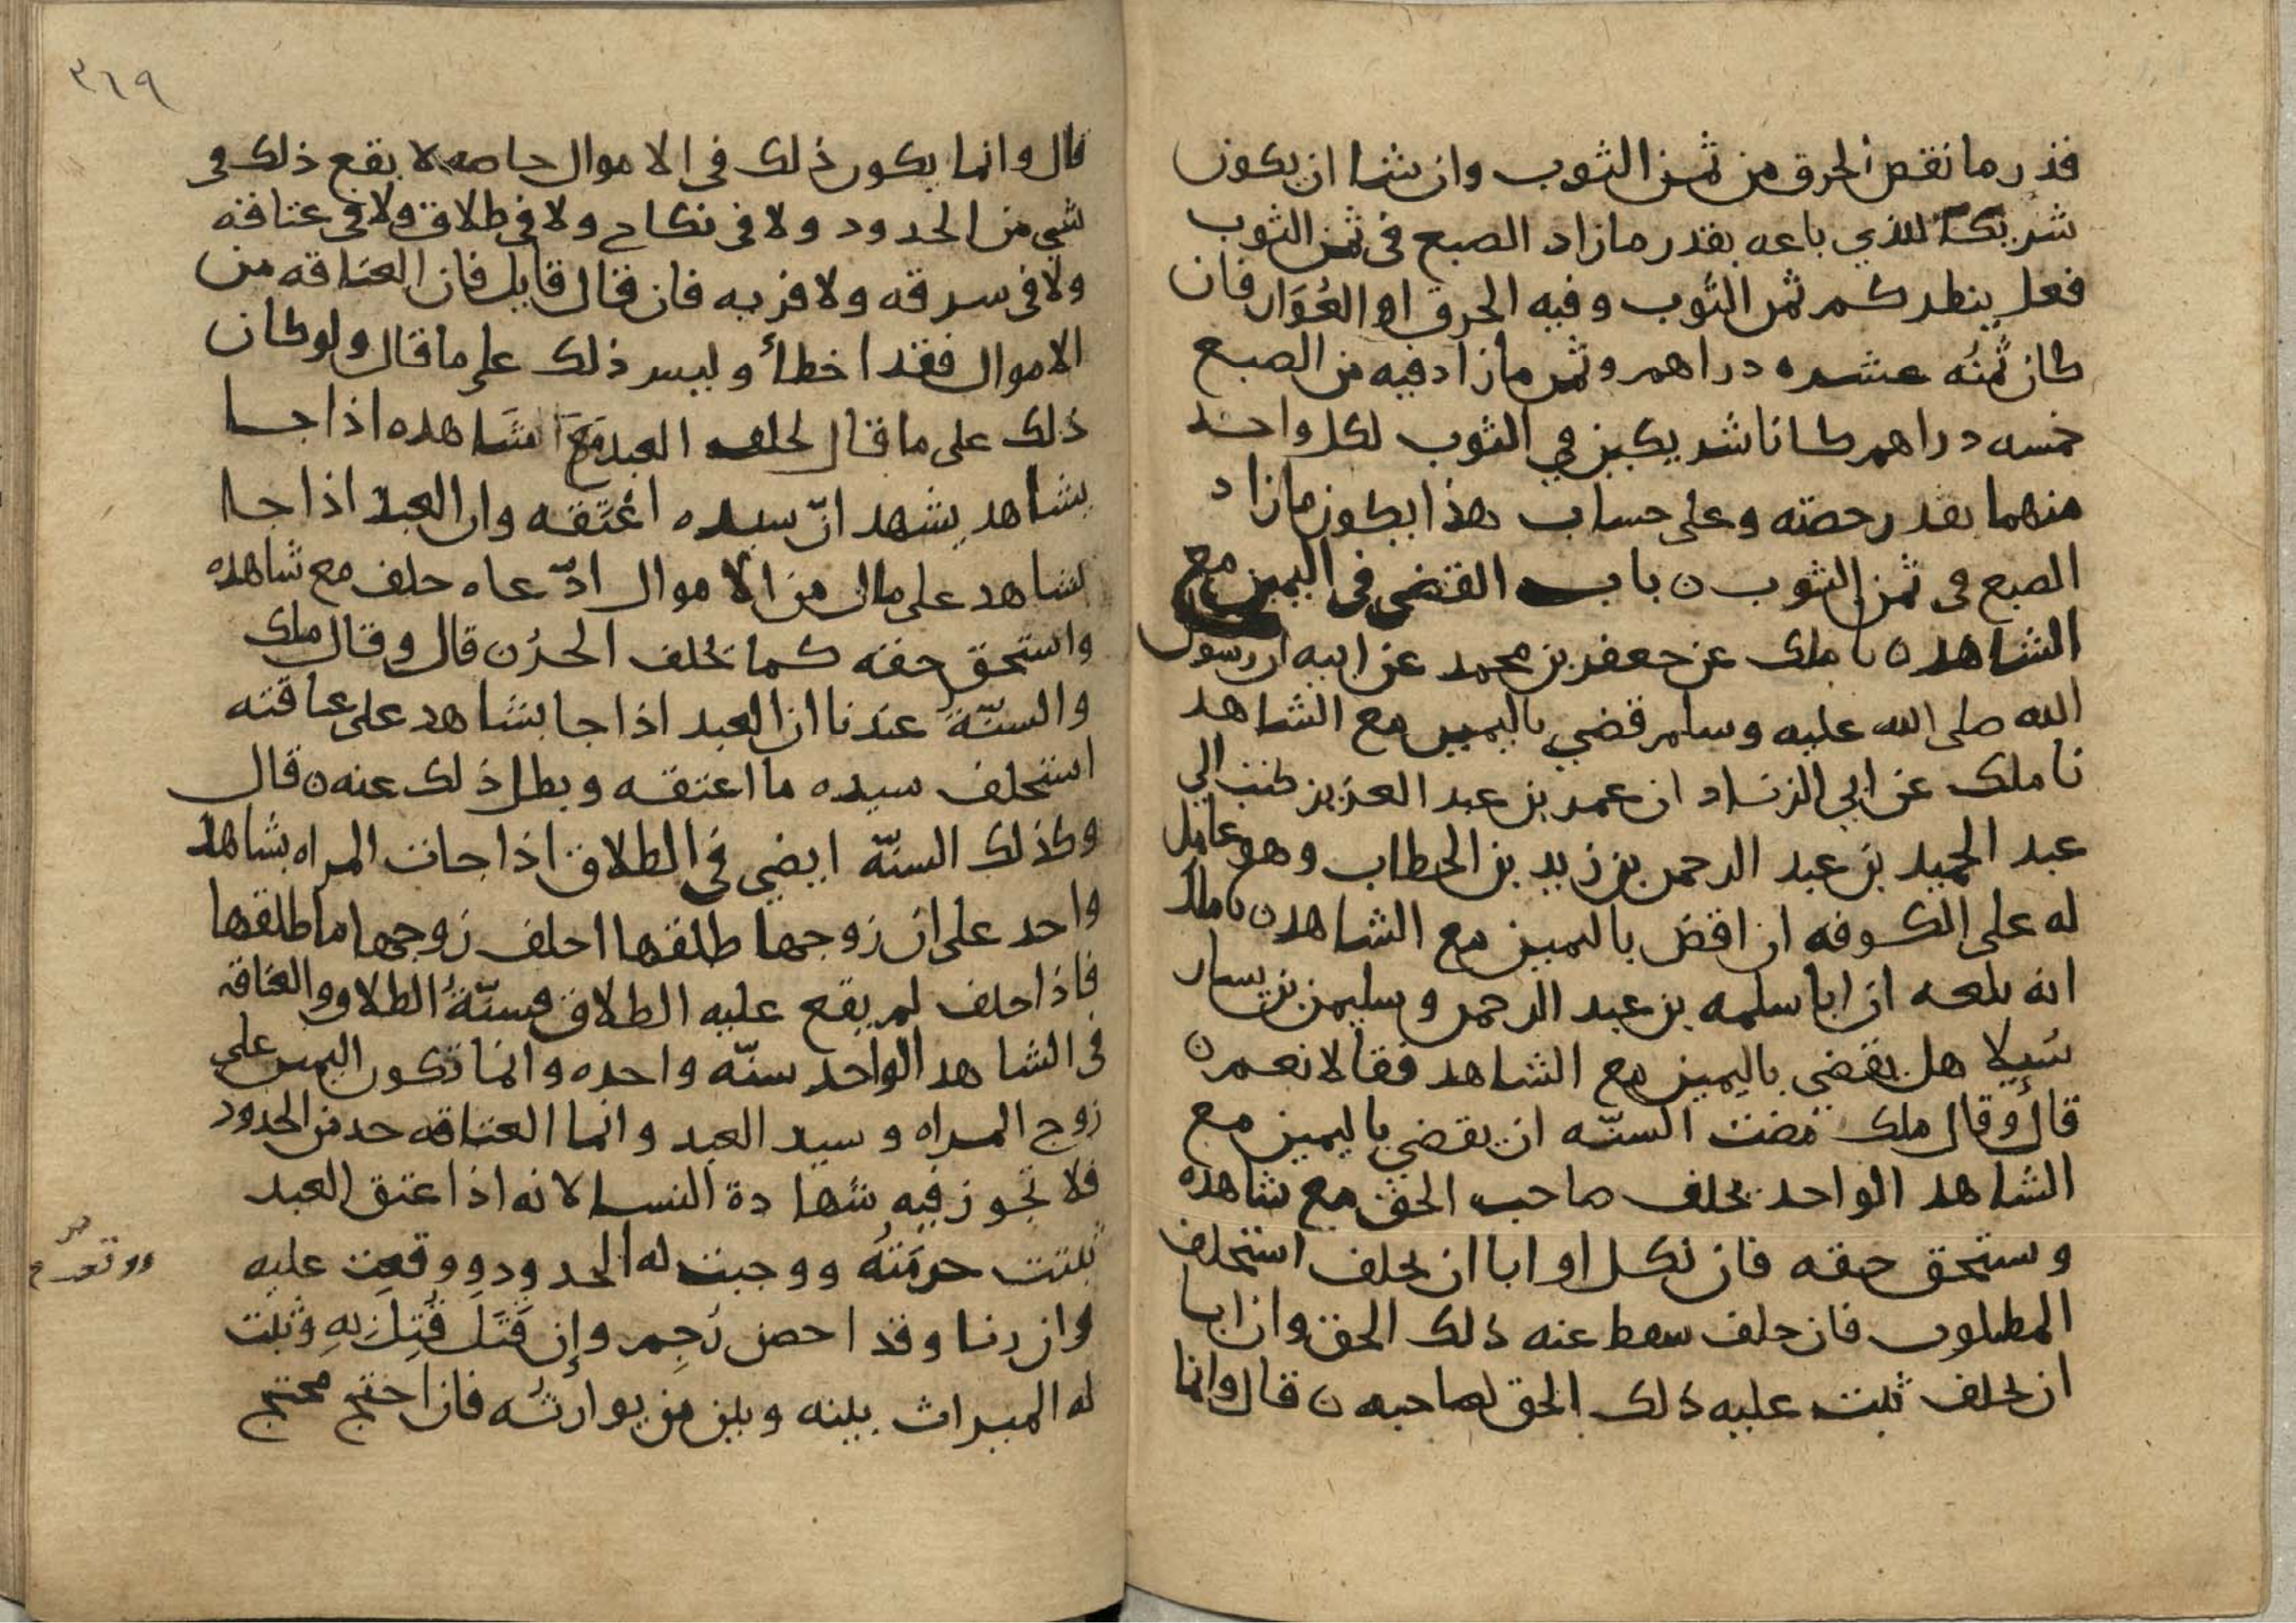 قدر ما نقص الحرق من ثمن الثوب وان شا ان يكون
شريكا للذي باعه بقدر ما زاد الصبع في ثمن الثوب
فعل ينظر كم ثمن الثوب وفيه الحرق او العُوَار فان
كان ثمنُه عشره دراهم وثمن ما زاد فيه من الصبع
خمسه دراهم كانا شريكين في الثوب لكل واحد
منهما بقدر حصته وعلى حساب هذا يكون ما زاد
الصبع في ثمن الثوب ن باب القضى في اليمين مع
الشاهد ن نا ملك عن جعفر بن محمد عن ابيه ان رسول
الله صلى الله عليه وسلم قضي باليمين مع الشاهد
نا ملك عن ابي الزناد ان عمر بن عبد العزيز كتب الي
عبد الحميد بن عبد الرحمن بن زيد بن الخطاب وهو عامل
له على الكوفه ان اقض باليمين مع الشاهد ن نا ملك
انه بلعه ان ابا سلمه بن عبد الرحمن وسليمن بن يسار
سُيلا هل يقضي باليمين مع الشاهد فقالا نعم ن
قال وقال ملك مضت السنّه ان يقضي باليمين مع
الشاهد الواحد يحلف صاحب الحق مع شاهده
وستحق حقه فان نكل او ابا ان يحلف استحلف
المطلوب فان حلف سقط عنه ذلك الحق وان ابا
ان يحلف ثبت عليه ذلك الحق لصاحبه ن قال وانما
٣٦٩
قال وانما يكون ذلك في الاموال خاصه لا يقع ذلك في
شي من الحدود ولا في نكاح ولا في طلاق ولا في عتاقه
ولا في سرقه ولا فريه فان قال قايل فان العتاقه من
الاموال فقد اخطأ وليس ذلك على ما قال ولو كان
ذلك على ما قال لحلف العبد مَعَ شاهده اذا جا
بشاهد يشهد انّ سيده اعْتَقه وان العبد اذا جا
بشاهد على مال من الاموال ادّعاه حلف مع شاهده
واستحق حقه كما يحلف الحرُ ن قال وقال ملك
والسنّةُ عندنا ان العبد اذا جا بشاهد على عتاقته
استحلف سيده ما اعتقه وبطل ذلك عنه ن قال
وكذلك السنّه ايضى في الطلاق اذا جات المراه بشاهد
واحد على ان زوجها طلقها احلف زوجها ما طلقها
فاذا حلف لم يقع عليه الطلاق فسنّةُ الطلاق والعتاقه
في الشاهد الواحد سنّه واحده وانما تكون اليمين على
زوج المراه وسيد العبد وانما العتاقه حد من الحدود
فلا تجوز فيه شهادة النسا لانه اذا عتق العبد
ثبتت حرمَتُه ووجبت له الحدود ووقعت عليه
وان زنا وقد احصن رُجِم وإن قَتَلَ قُتِلَ بهِ وثبت
له الميراث بينه وبين من يوارثُه فان احتج محتج